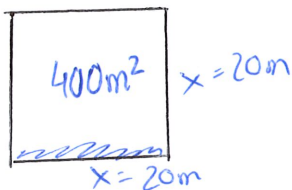 400m²
x = 20m
x = 20m